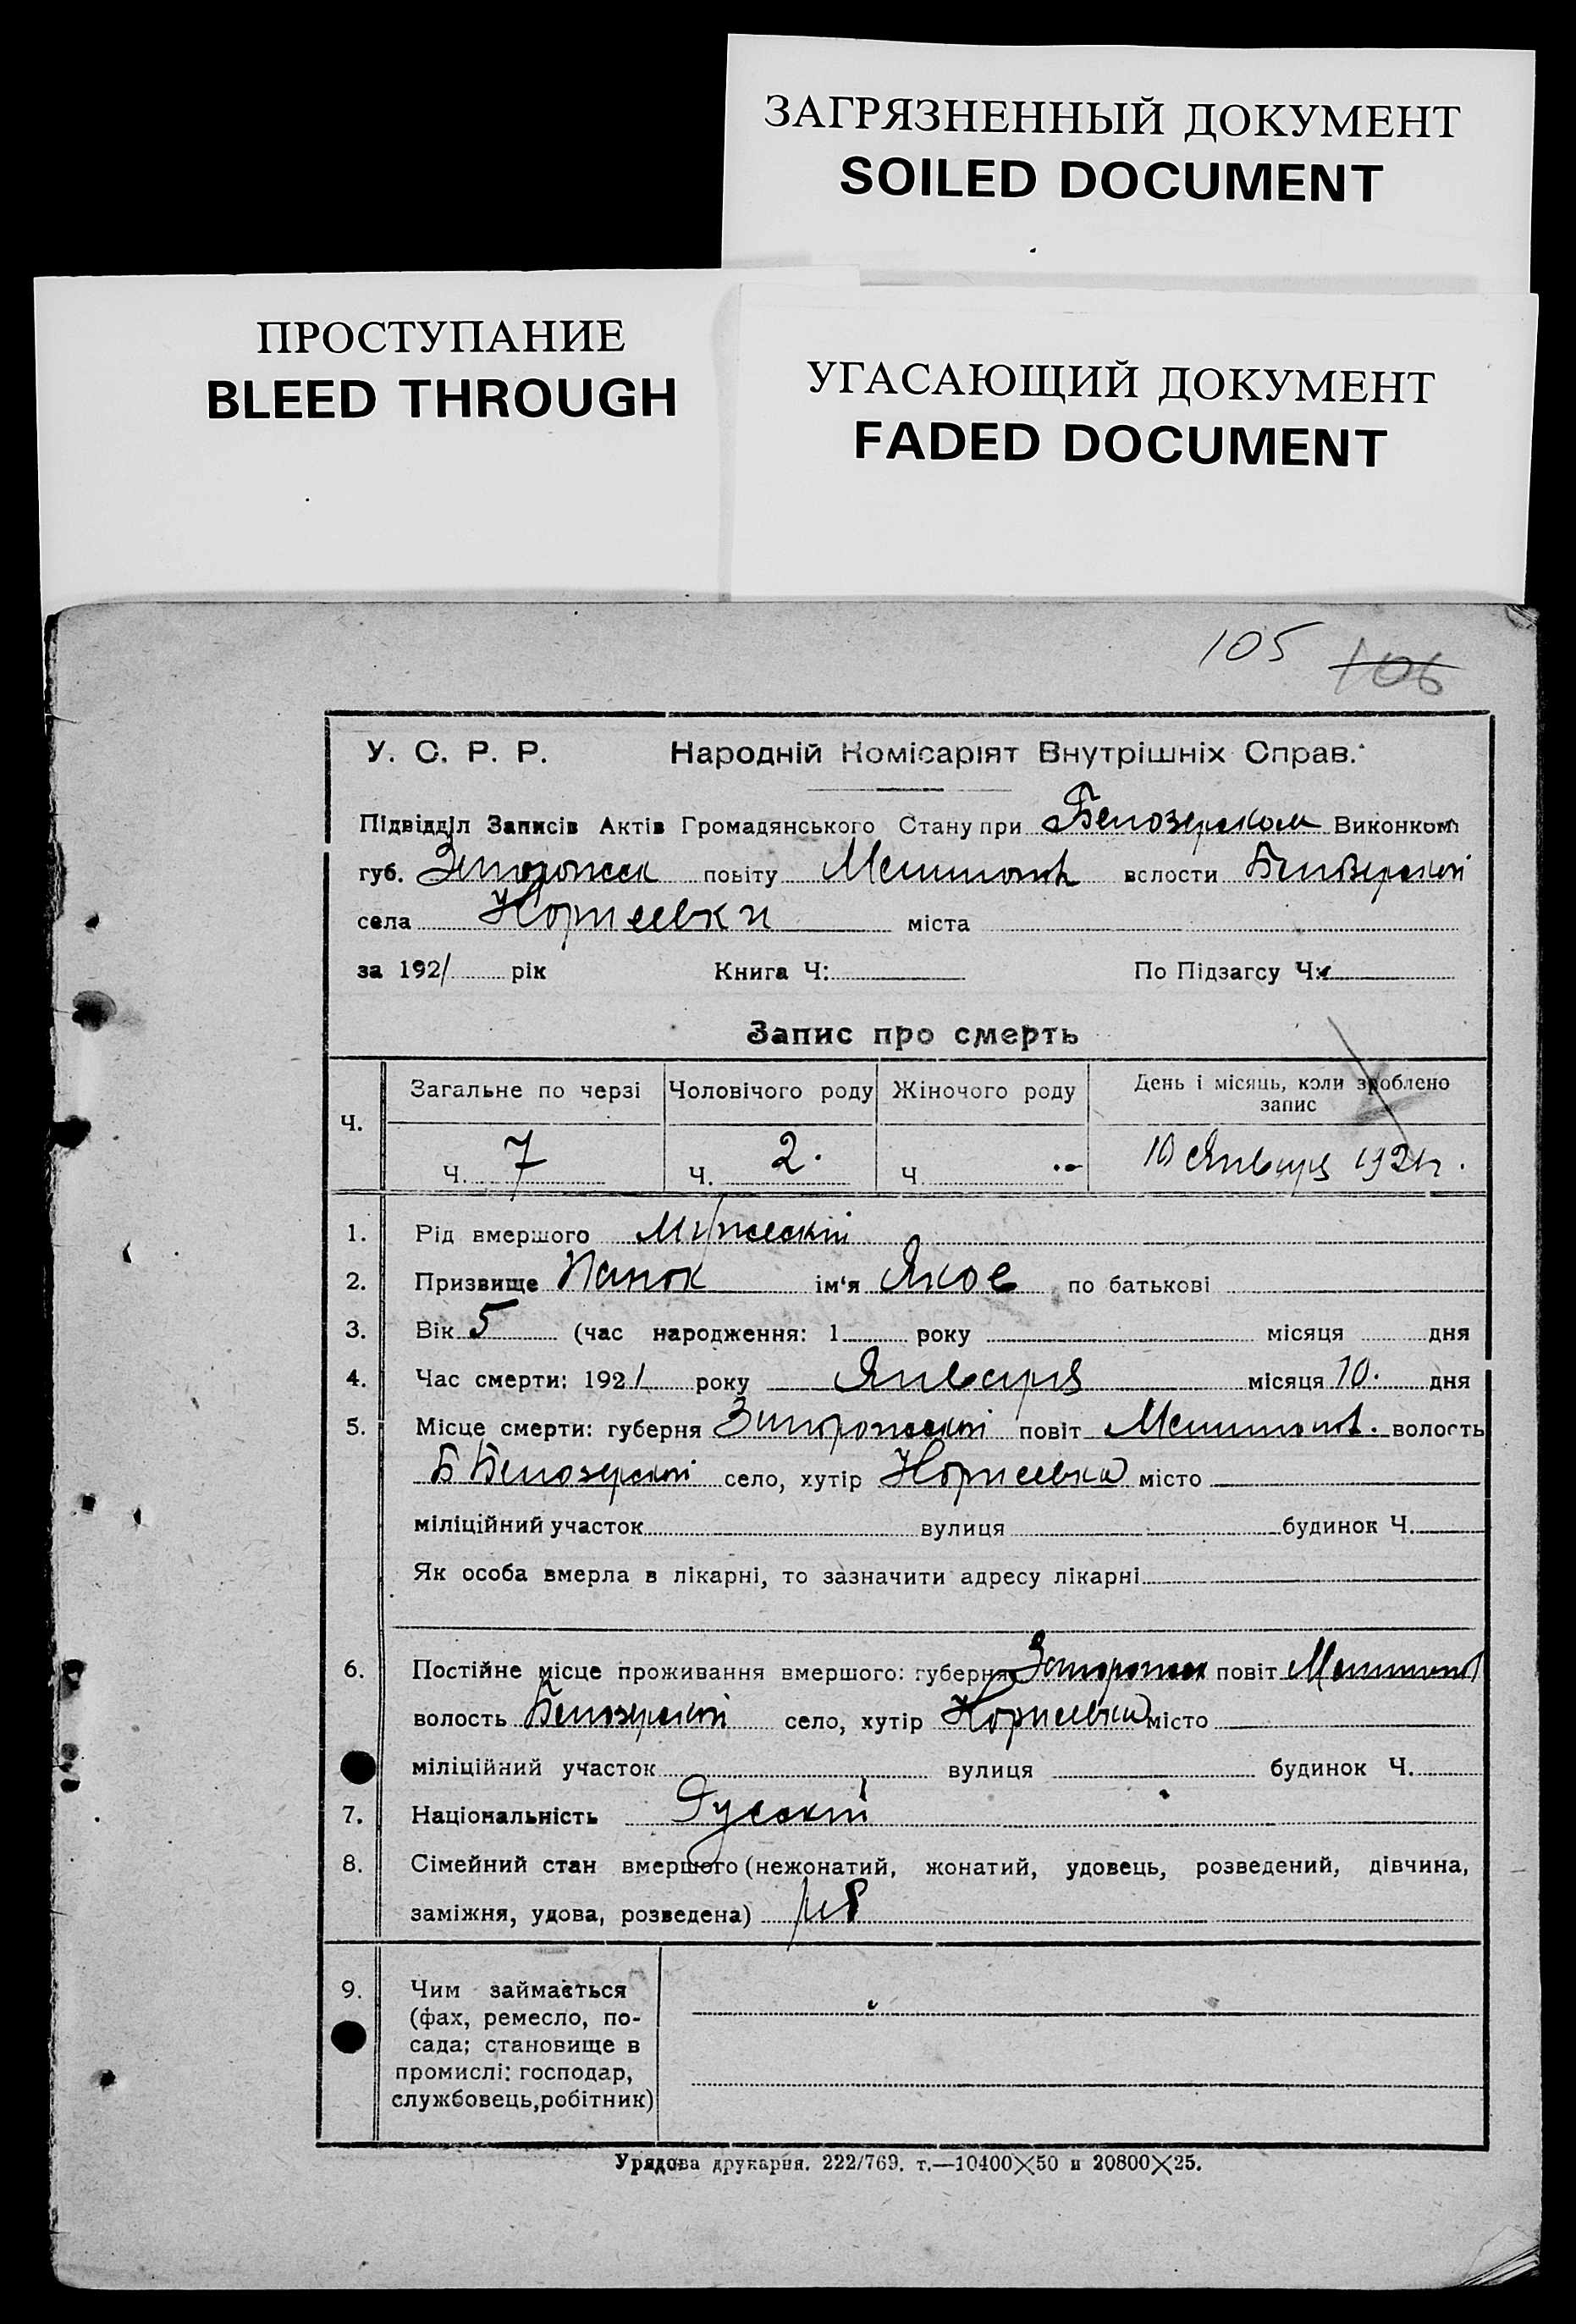 ЗАГРЯЗНЕННЫЙ ДОКУМЕНТ
SOILED DOCUMENT
ПРОСТУПАНИЕ
BLEED THROUGH
УГАСАЮЩИЙ ДОКУМЕНТ
FADED DOCUMENT
105 106
У. С. Р. Р. Народній Комісаріят Внутрішніх Справ.
Підвідділ Записів Актів Громадянського Стану при Белозерском Виконком
губ. Запорожск повіту Мелитопол волости Белозерской
села міста
за 1921 рік Книга Ч: По Підзагсу Ч:
Запис про смерть
Ч. Загальне по черзі Чоловічого роду Жіночого роду День і місяць, коли зроблено запис
Ч. 7 Ч. 2. Ч. 10 Января 1921 г.
1. Рід вмершого Мужеский
2. Призвище Панок ім'я Яков по батькові
3. Вік 5 (час народження: 1 року місяця дня
4. Час смерти: 1921 року Января місяця 10. дня
5. Місце смерти: губерня Запорожской повіт Мелитопол. волость
Б Белозерской село, хутір місто
міліційний участок вулиця будинок Ч.
Як особа вмерла в лікарні, то зазначити адресу лікарні
6. Постійне місце проживання вмершого: губерня Запорожск повіт Мелитопол
волость Белозерской село, хутір місто
міліційний участок вулиця будинок Ч.
7. Національність Русский
8. Сімейний стан вмершого (нежонатий, жонатий, удовець, розведений, дівчина,
заміжня, удова, розведена)
9. Чим займається
(фах, ремесло, по-
сада; становище в
промислі: господар,
службовець, робітник)
Урядова друкарня. 222/769. т.—10400×50 и 20800×25.